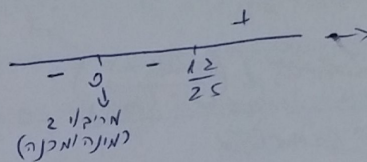 +
- 0 - 12/25
מריבוי 2
(מונה ומכנה)